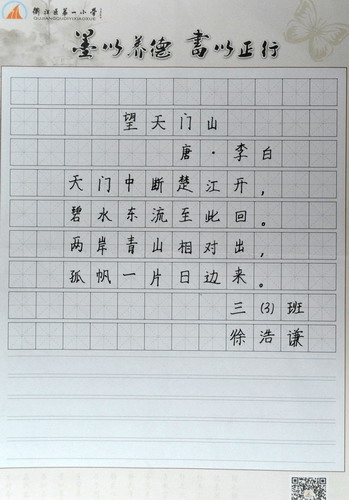 衢江区第一小学
墨以养德 書以正行
望天门山
唐·李白
天门中断楚江开，
碧水东流至此回。
两岸青山相对出，
孤帆一片日边来。
三(3)班
徐浩谦